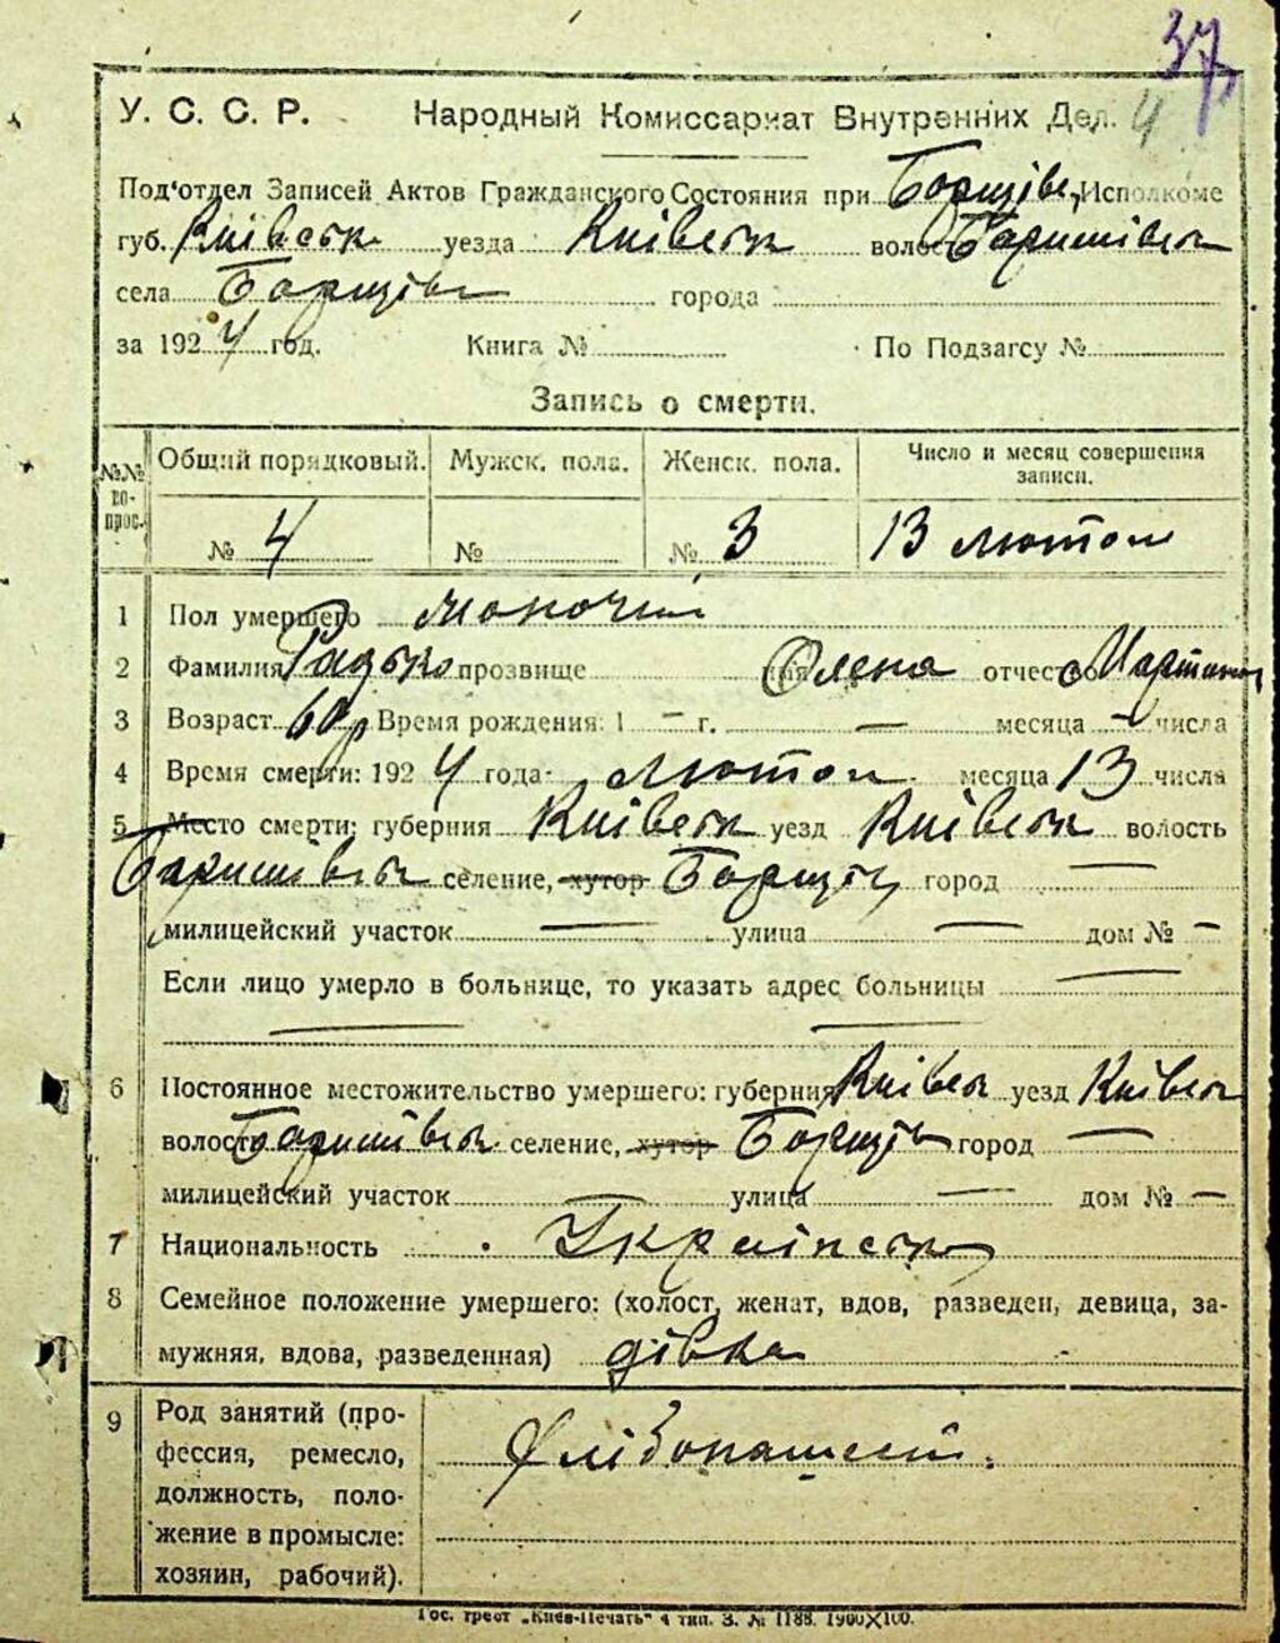 37
У. С. С. Р. Народный Комиссариат Внутренних Дел. 4
Под'отдел Записей Актов Гражданского Состояния при Борщів. Исполкоме
губ. Київськ уезда Київськ волос Баришівськ
села Борщів города
за 1924 год. Книга № По Подзагсу №
Запись о смерти.
№№ во-прос. Общий порядковый. Мужск. пола. Женск. пола. Число и месяц совершения записи.
№ 4 № № 3 13 лютого
1 Пол умершего жіночий
2 Фамилия Радько прозвище имя Олена отчество Мартинов
3 Возраст 60 р Время рождения: 1 — г. — месяца — числа
4 Время смерти: 1924 года лютого месяца 13 числа
5 Место смерти: губерния Київськ уезд Київськ волость
Баришівськ селение, хутор Борщів город —
милицейский участок — улица — дом № —
Если лицо умерло в больнице, то указать адрес больницы —
— —
6 Постоянное местожительство умершего: губерния Київськ уезд Київськ
волость Баришівськ селение, хутор Борщів город —
милицейский участок — улица — дом № —
7 Национальность Українськ
8 Семейное положение умершего: (холост, женат, вдов, разведен, девица, за-
мужняя, вдова, разведенная) дівка
9 Род занятий (про-
фессия, ремесло,
должность, поло-
жение в промысле:
хозяин, рабочий).
Хлібопашест.
Гос. трест „Киев-Печать" 4 тип. З. № 1188. 1900Х100.